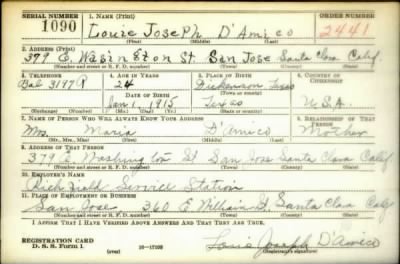 SERIAL NUMBER 1. NAME (Print) ORDER NUMBER
1090 Louie Joseph D'Amico 2441
(First) (Middle) (Last)
2. ADDRESS (Print)
379 E. Wasington St. San Jose Santa Clara Calif.
(Number and street or R. F. D. number) (Town) (County) (State)
3. TELEPHONE 4. AGE IN YEARS 5. PLACE OF BIRTH 6. COUNTRY OF CITIZENSHIP
Bal 3197R 24 Dickenson Texas
DATE OF BIRTH (Town or county)
Jan 1 1915 Texas U.S.A.
(Exchange) (Number) (Mo.) (Day) (Yr.) (State or country)
7. NAME OF PERSON WHO WILL ALWAYS KNOW YOUR ADDRESS 8. RELATIONSHIP OF THAT PERSON
Mrs. Maria D'Amico Mother
(Mr., Mrs., Miss) (First) (Middle) (Last)
9. ADDRESS OF THAT PERSON
379 E Washington St San Jose Santa Clara Calif
(Number and street or R. F. D. number) (Town) (County) (State)
10. EMPLOYER'S NAME
Rich field Service Station
11. PLACE OF EMPLOYMENT OR BUSINESS
San Jose 360 E William St. Santa Clara Calif
(Number and street or R. F. D. number) (Town) (County) (State)
I AFFIRM THAT I HAVE VERIFIED ABOVE ANSWERS AND THAT THEY ARE TRUE.
REGISTRATION CARD
D. S. S. Form 1 (over) 16-17105 Louis Joseph D'Amico
(Registrant's signature)